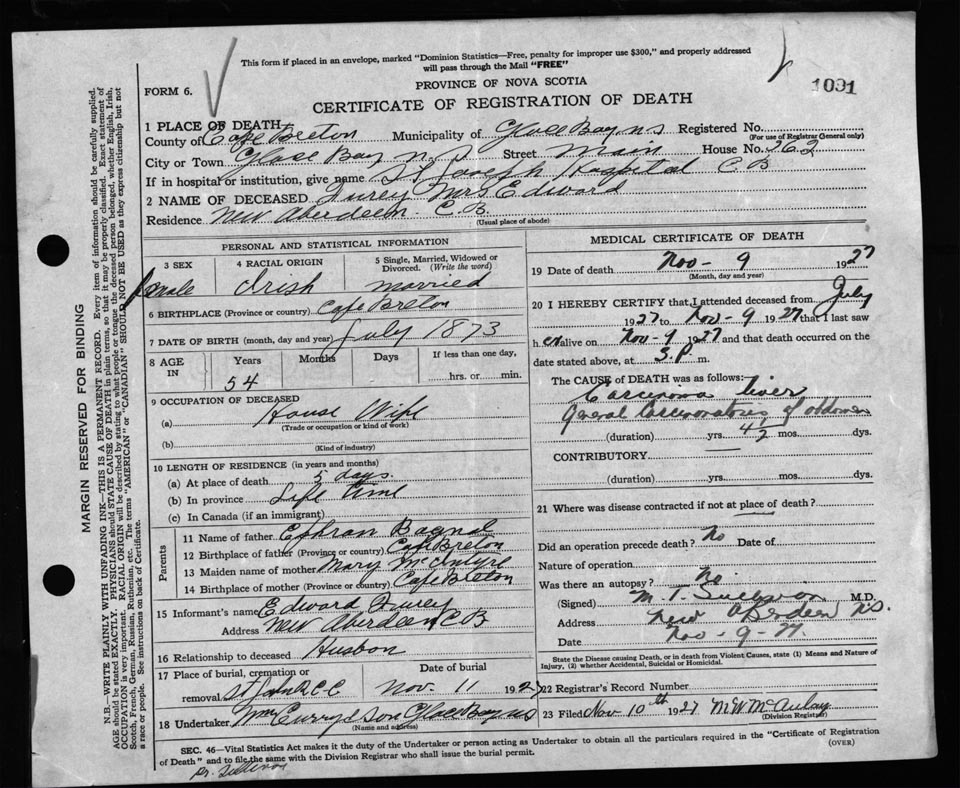 This form if placed in an envelope, marked "Dominion Statistics—Free, penalty for improper use $300," and properly addressed
will pass through the Mail "FREE"
FORM 6.
PROVINCE OF NOVA SCOTIA
1091
CERTIFICATE OF REGISTRATION OF DEATH
1 PLACE OF DEATH
County of Cape Breton Municipality of Glace Bay N S Registered No.
(For use of Registrar General only)
City or Town Glace Bay N S Street Main House No. 262
If in hospital or institution, give name St Joseph Hospital C B
2 NAME OF DECEASED Mrs Edward
Residence New Aberdeen C.B.
(Usual place of abode)
PERSONAL AND STATISTICAL INFORMATION
3 SEX 4 RACIAL ORIGIN 5 Single, Married, Widowed or Divorced. (Write the word)
female Irish married
6 BIRTHPLACE (Province or country) Cape Breton
7 DATE OF BIRTH (month, day and year) July 1873
8 AGE IN Years Months Days If less than one day,
54 hrs. or min.
9 OCCUPATION OF DECEASED
(a) House Wife
(Trade or occupation or kind of work)
(b)
(Kind of industry)
10 LENGTH OF RESIDENCE (in years and months)
(a) At place of death 5 days.
(b) In province Life time
(c) In Canada (if an immigrant)
Parents
11 Name of father Ephran Bagnel
12 Birthplace of father (Province or country) Cape Breton
13 Maiden name of mother Mary McIntyre
14 Birthplace of mother (Province or country) Cape Breton
15 Informant's name Edward
Address New Aberdeen C B
16 Relationship to deceased Husbon
17 Place of burial, cremation or removal Date of burial
St John R.C.C Nov. 11 1927
18 Undertaker Wm Curry & Son Glace Bay NS
(Name and address)
MEDICAL CERTIFICATE OF DEATH
19 Date of death Nov - 9 1927
(Month, day and year)
20 I HEREBY CERTIFY that I attended deceased from July
1927 to Nov - 9 1927 that I last saw
h er alive on Nov - 9 1927 and that death occurred on the
date stated above, at 3. P. m.
The CAUSE of DEATH was as follows:
Carcinoma liver
General Carcinomatosis of abdomen
(duration) yrs. 4 1/2 mos. dys.
CONTRIBUTORY
(duration) yrs. mos. dys.
21 Where was disease contracted if not at place of death?
Did an operation precede death? No Date of
Nature of operation
Was there an autopsy? No.
(Signed) M. T. Sullivan M.D.
Address New Aberdeen N.S.
Date Nov - 9 - 27
State the Disease causing Death, or in death from Violent Causes, state (1) Means and Nature of
Injury, (2) whether Accidental, Suicidal or Homicidal.
22 Registrar's Record Number
23 Filed Nov 10th 1927 M W McAulay
(Division Registrar)
SEC. 46—Vital Statistics Act makes it the duty of the Undertaker or person acting as Undertaker to obtain all the particulars required in the "Certificate of Registration
of Death" and to file the same with the Division Registrar who shall issue the burial permit. (OVER)
Dr. Sullivan
MARGIN RESERVED FOR BINDING
N.B.—WRITE PLAINLY WITH UNFADING INK—THIS IS A PERMANENT RECORD. Every item of information should be carefully supplied.
AGE should be stated EXACTLY. PHYSICIANS should STATE CAUSE OF DEATH in plain terms, so that it may be properly classified. Exact statement of
OCCUPATION is very important. RACIAL ORIGIN will be described by stating to what people or tongue the deceased person belonged, whether English, Irish,
Scotch, French, German, Russian, Ruthenian, etc. The terms "AMERICAN" or "CANADIAN" SHOULD NOT BE USED as they express citizenship but not
a race or people. See instructions on back of Certificate.